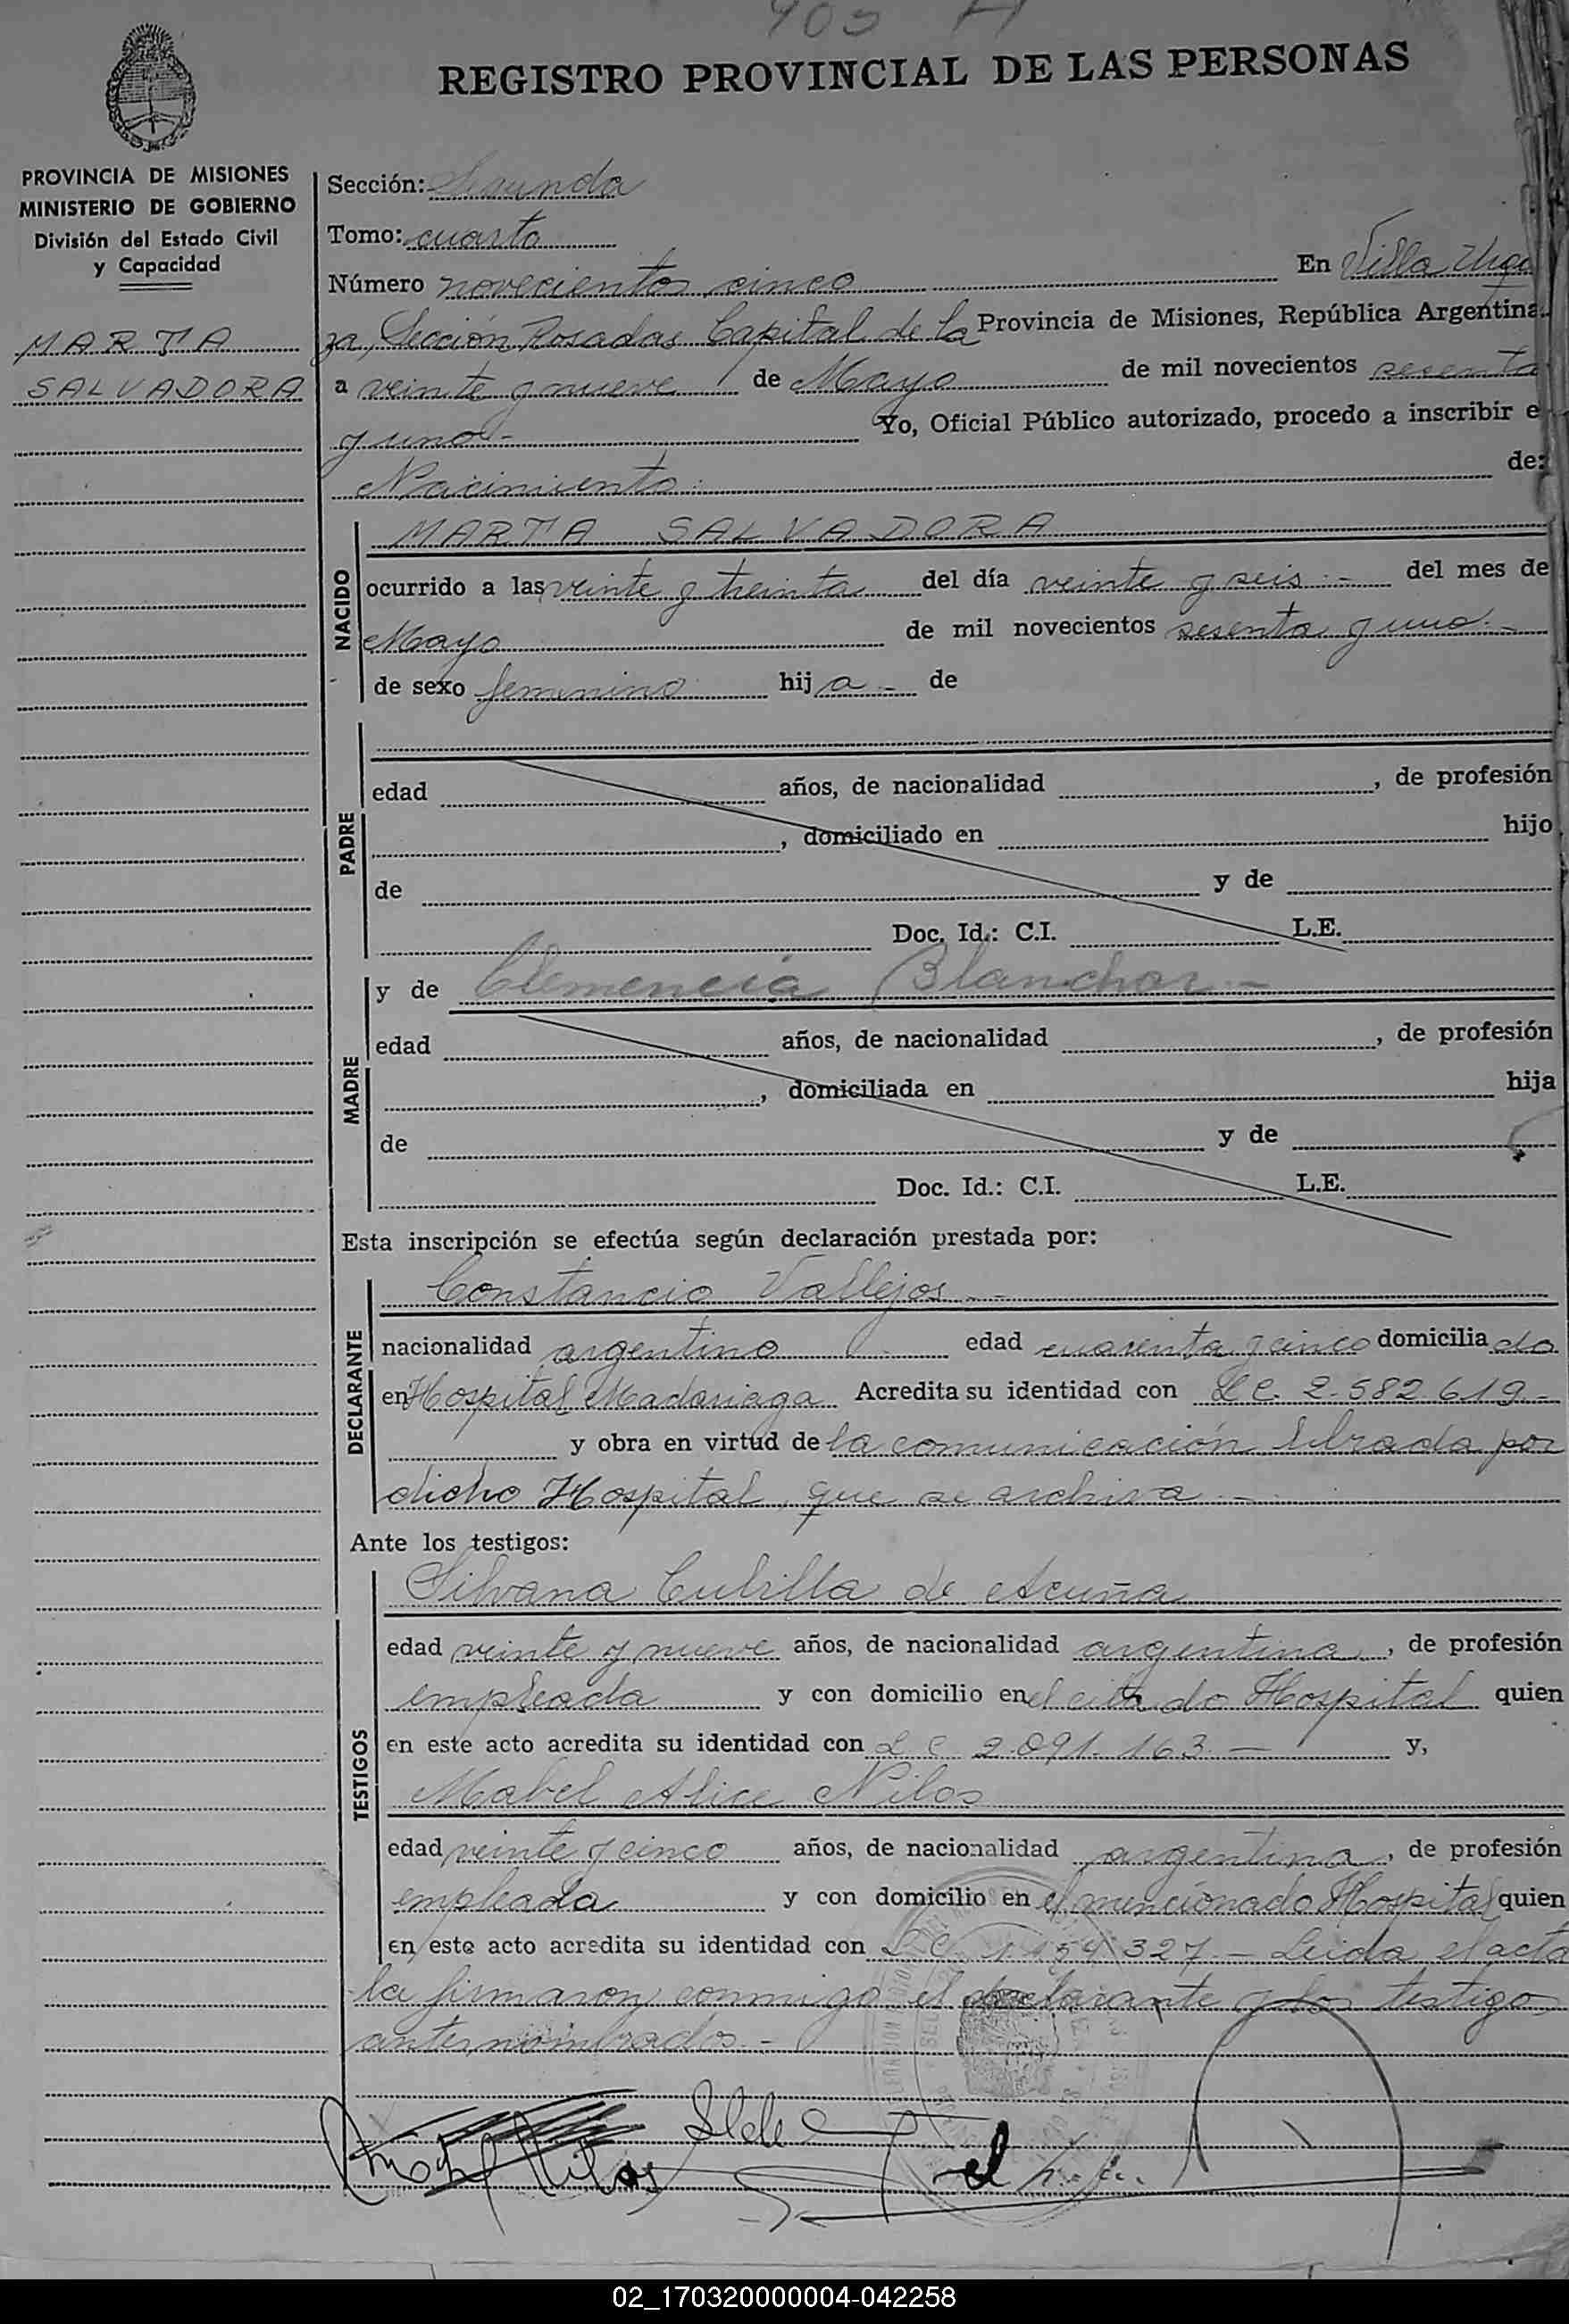 905
REGISTRO PROVINCIAL DE LAS PERSONAS
PROVINCIA DE MISIONES
MINISTERIO DE GOBIERNO
División del Estado Civil
y Capacidad
MARTA
SALVADORA
Sección: Segunda
Tomo: cuarto
Número novecientos cinco En Villa Urqui
za, Sección Posadas Capital de la Provincia de Misiones, República Argentina
a veinte y nueve de Mayo de mil novecientos sesenta
y uno - Yo, Oficial Público autorizado, procedo a inscribir e
Nacimiento de:
NACIDO
MARTA SALVADORA
ocurrido a las veinte y treinta del día veinte y seis - del mes de
Mayo de mil novecientos sesenta y uno -
de sexo femenino hij a - de
PADRE
edad años, de nacionalidad , de profesión
, domiciliado en hijo
de y de
Doc. Id.: C.I. L.E.
MADRE
y de Clemencia Blanchor -
edad años, de nacionalidad , de profesión
, domiciliada en hija
de y de
Doc. Id.: C.I. L.E.
Esta inscripción se efectúa según declaración prestada por:
DECLARANTE
Constancio Vallejos -
nacionalidad argentino edad cuarenta y cinco domicilia do
en Hospital Madariaga Acredita su identidad con L E. 2.582.619 -
y obra en virtud de la comunicación librada por
dicho Hospital, que se archiva -
Ante los testigos:
TESTIGOS
Silvana Cubilla de Acuña
edad veinte y nueve años, de nacionalidad argentina, de profesión
empleada y con domicilio en el citado Hospital quien
en este acto acredita su identidad con L C 2.091.163 - y,
Mabel Alice Nilos
edad veinte y cinco años, de nacionalidad argentina, de profesión
empleada y con domicilio en el mencionado Hospital quien
en este acto acredita su identidad con L C 327 - Leida el acta
la firmaron conmigo el declarante y los testigo
antes nombrados. -
02_170320000004-042258